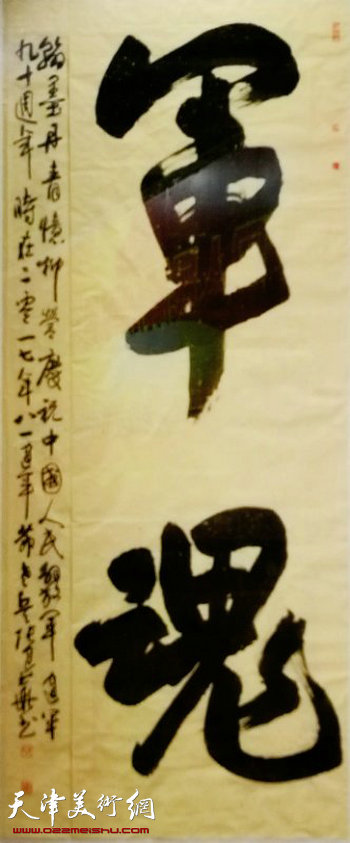 軍魂
翰墨丹青憶柳營慶祝中國人民解放軍建軍
九十週年時在二零一七年八一建軍節老兵張建
天津美術網
www.022meishu.com